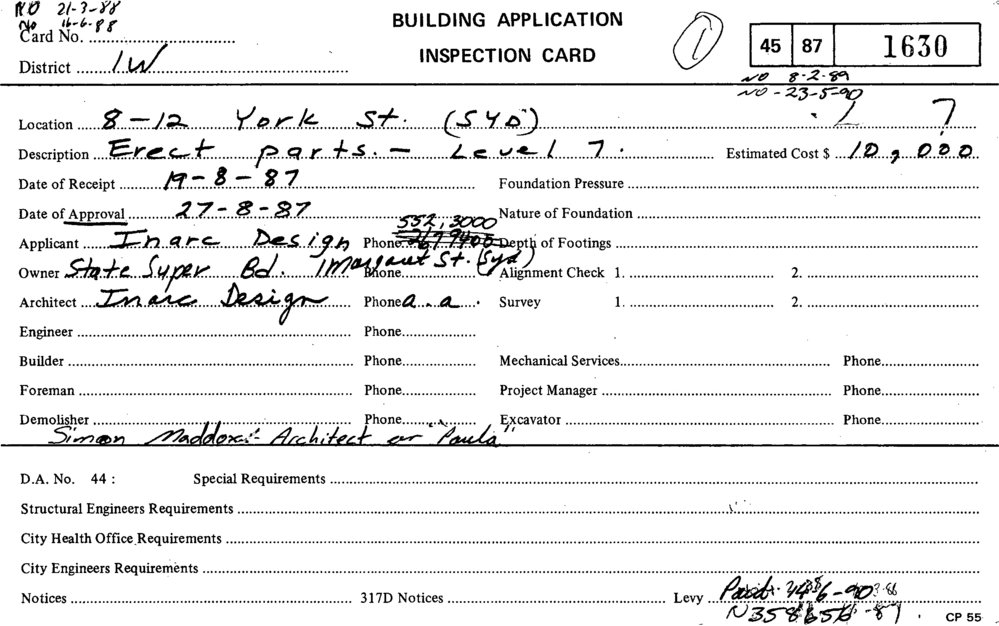 NO 21-3-88
NO 16-6-88
Card No.
District 1W
BUILDING APPLICATION
INSPECTION CARD
1
45 87 1630
NO 8-2-89
NO - 23-5-90
Location 8-12 York St. (SYD) 7
Description Erect parts. - Level 7. Estimated Cost $ 10,000
Date of Receipt 19-8-87 Foundation Pressure
Date of Approval 27-8-87 Nature of Foundation
552,3000
Applicant Inarc Design Phone Depth of Footings
Owner State Super Bd. 1 Margaret St. (Syd) Phone Alignment Check 1. 2.
Architect Inarc Design Phone a.a. Survey 1. 2.
Engineer Phone
Builder Phone Mechanical Services Phone
Foreman Phone Project Manager Phone
Demolisher Phone Excavator Phone
Simon Maddox - Architect or "Paula"
D.A. No. 44 : Special Requirements
Structural Engineers Requirements
City Health Office Requirements
City Engineers Requirements
Notices 317D Notices Levy Paid
CP 55